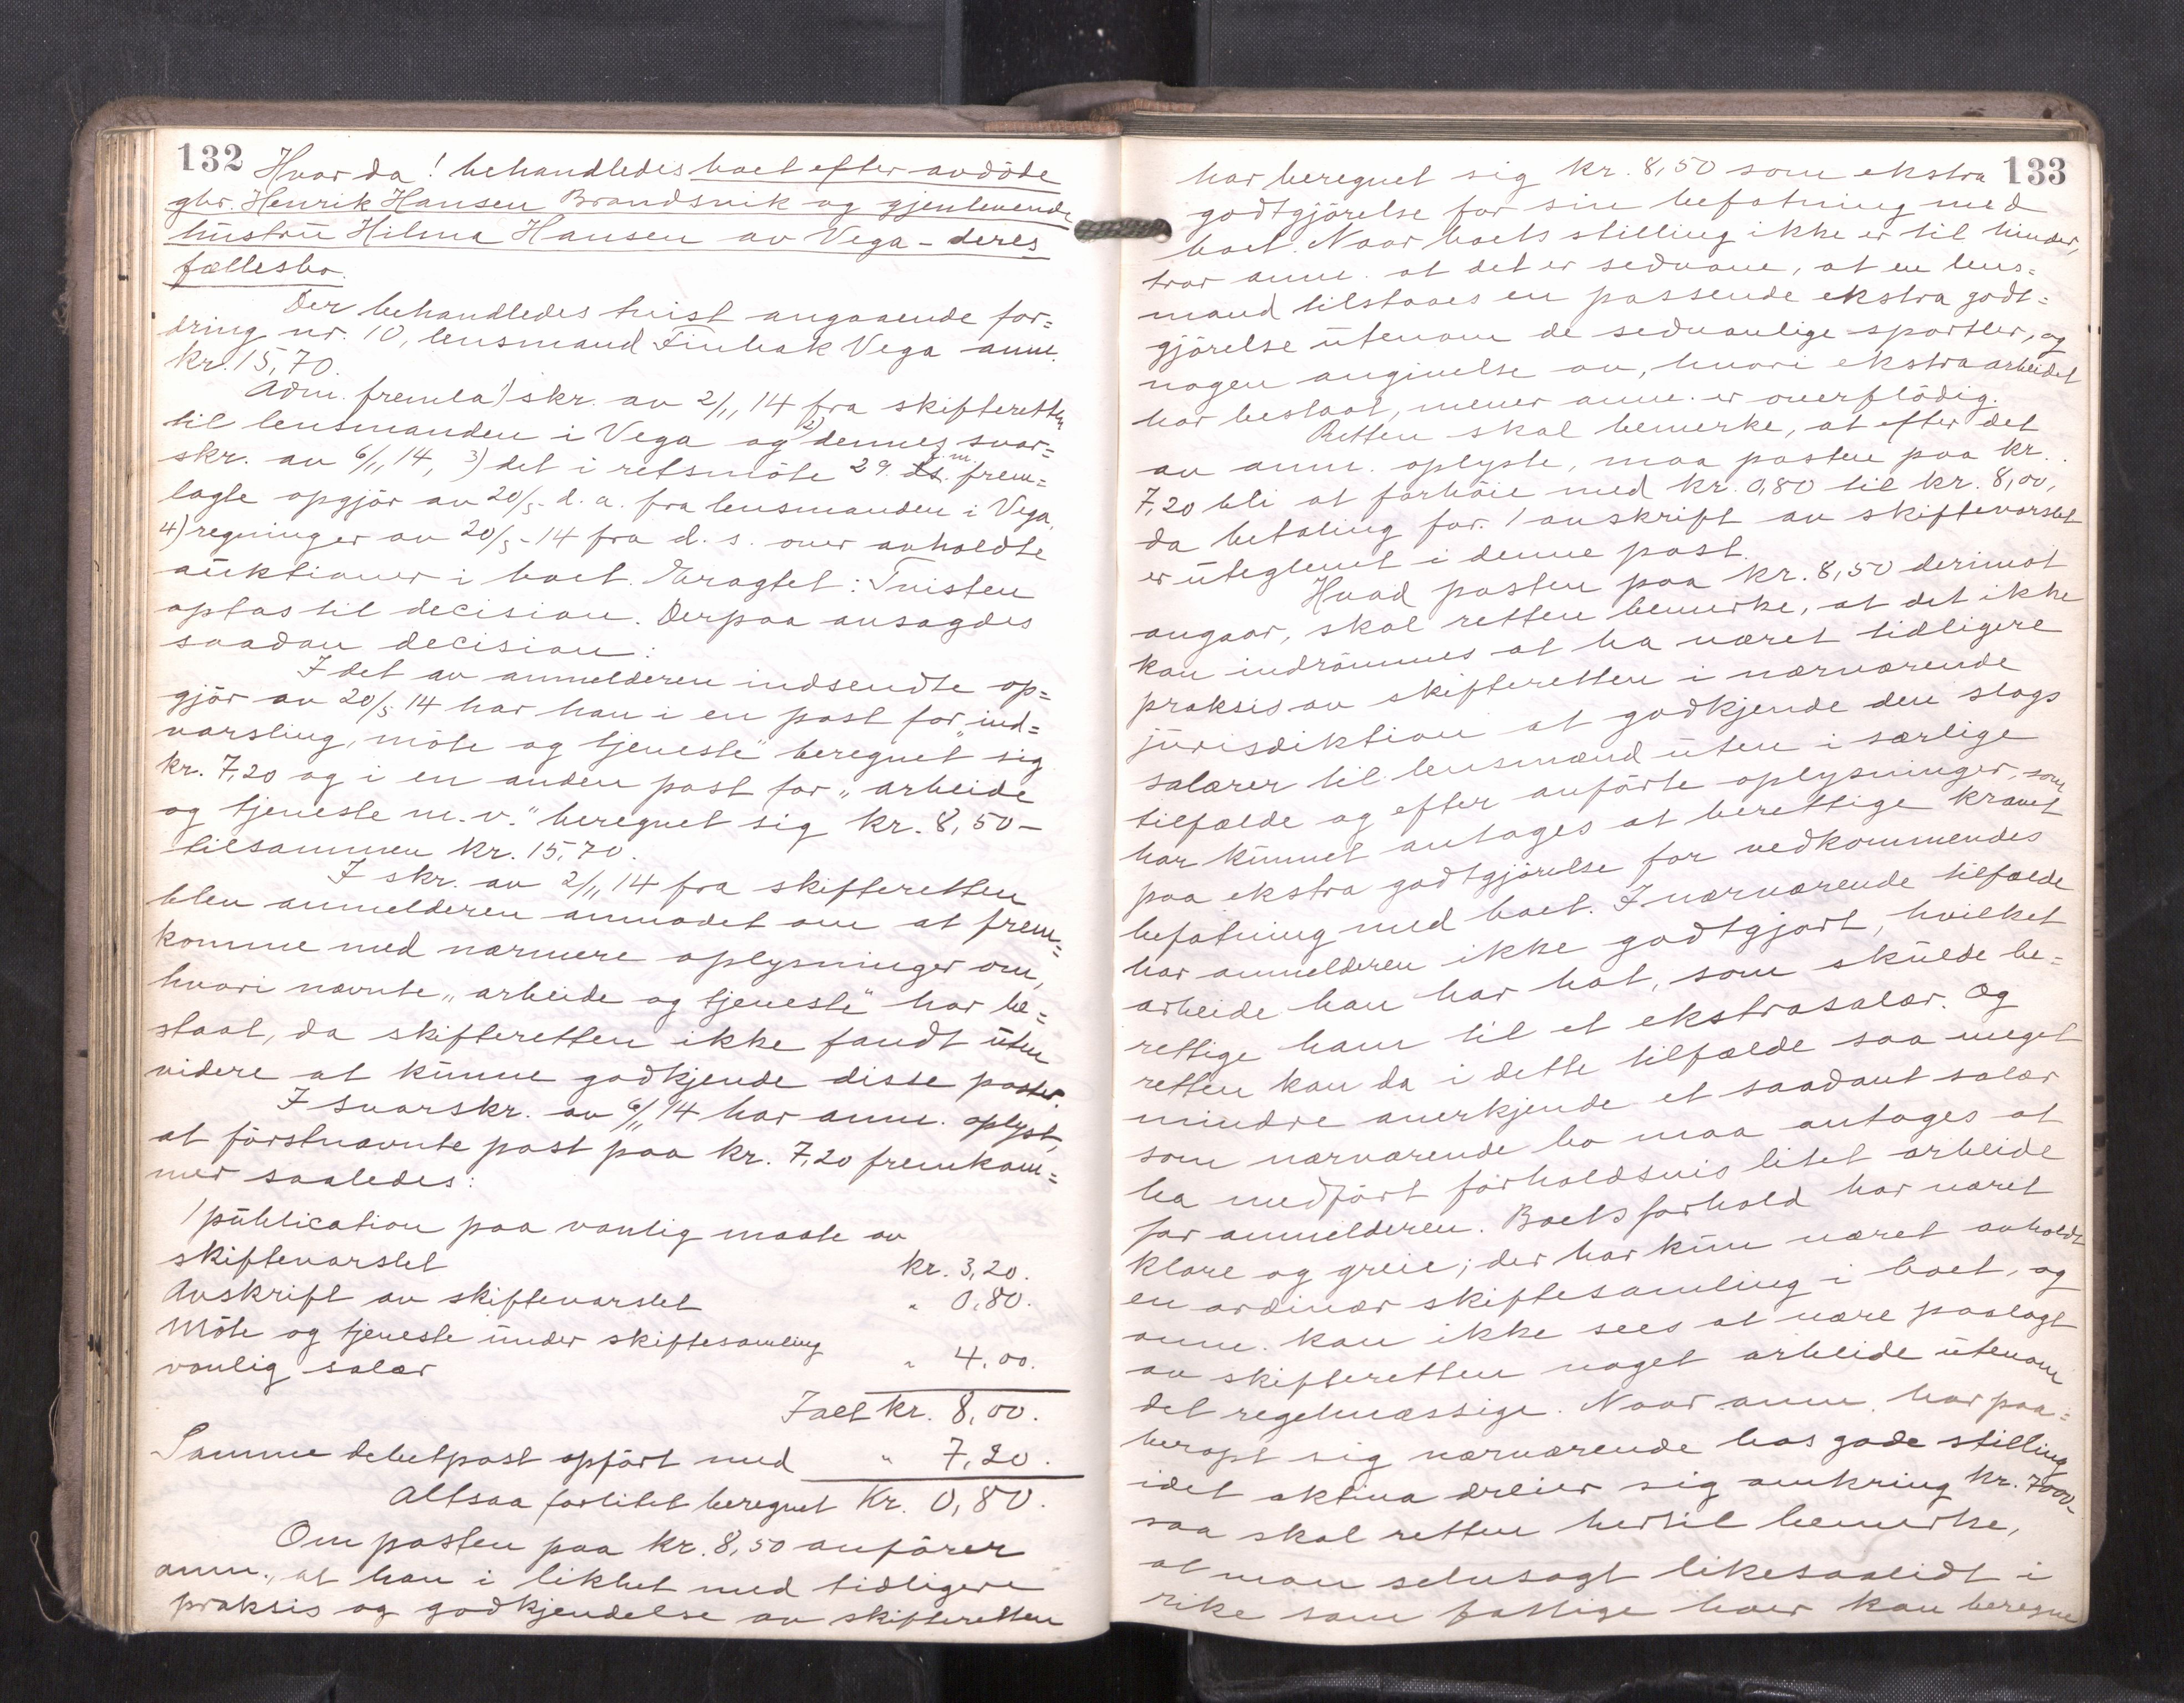 132 Hvorda! behandledes boet efter avdöde
gbr. Henrik Hansen Brandsvik og gjenlevende
hustru Hilma Hansen av Vega - deres
fællesbo.
Der behandledes tvist angaaende for=
dring nr. 10, lensmand Finhak Vega anm.
kr. 15,70.
Adm. fremla 1) skr. av 2/11 14 fra skifteretten
til lensmanden i Vega og 2) dennes svar=
skr. av 6/11 14, 3) det i retsmöte 29. ds. f.m. frem=
lagte opgjör av 20/5 d. a. fra lensmanden i Vega,
4) regninger av 20/5 - 14 fra d. s. over avholdte
auktioner i boet. Eragtet: Tvisten
optas til decision. Derpaa avsagdes
saadan decision:
I det av anmelderen indsendte op=
gjör av 20/5 14 har han i en post for „ind=
varsling, möte og tjeneste" beregnet sig
kr. 7,20 og i en anden post for „arbeide
og tjeneste m.v." beregnet sig kr. 8,50 -
tilsammen kr. 15,70.
I skr. av 2/11 14 fra skifteretten
blev anmelderen anmodet om at frem=
komme med nærmere oplysninger om,
hvori nævnte „arbeide og tjeneste" har be=
staat, da skifteretten ikke fandt uten
videre at kunne godkjende disse poster.
I svarskr. av 6/11 14 har anm. oplyst,
at förstnævnte post paa kr. 7,20 fremkom=
mer saaledes:
1 publication paa vanlig maate av
skiftevarslet kr. 3,20.
Avskrift av skiftevarslet " 0,80.
Möte og tjeneste under skiftesamling
vanlig salær " 4,00.
Ialt kr. 8,00.
Samme debetpost opfört med " 7,20.
Altsaa forlitet beregnet Kr. 0,80.
Om posten paa kr. 8,50 anförer
anm., at han i likhet med tidligere
praksis og godkjendelse av skifteretten
133
har beregnet sig kr. 8,50 som ekstra
godtgjörelse for sin befatning med
boet. Naar boets stilling ikke er til hinder,
tror anm. at det er sedvane, at en lens=
mand tilstaaes en passende ekstra godt=
gjörelse utenom de sedvanlige sportler, og
nogen angivelse av, hvori ekstraarbeidet
har bestaat, mener anm. er overflödig.
Retten skal bemerke, at efter det
av anm. oplyste, maa posten paa kr.
7,20 bli at forhöie med kr. 0,80 til kr. 8,00,
da betaling for 1 avskrift av skiftevarslet
er uteglemt i denne post.
Hvad posten paa kr. 8,50 derimot
angaar, skal retten bemerke, at det ikke
kan indrömmes at ha været tidligere
praksis av skifteretten i nærværende
jurisdiktion at godkjende den slags
salærer til lensmænd uten i særlige
tilfælde og efter anförte oplysninger, som
har kunnet antages at berettige kravet
paa ekstra godtgjörelse for vedkommendes
befatning med boet. I nærværende tilfælde
har anmelderen ikke godtgjort, hvilket
arbeide han har hat, som skulde be=
rettige ham til et ekstrasalær. Og
retten kan da i dette tilfælde saa meget
mindre anerkjende et saadant salær
som nærværende bo maa antages at
ha medfört forholdsvis litet arbeide
for anmelderen. Boets forhold har været
klare og greie; der har kun været avholdt
en ordinær skiftesamling i boet, og
anm. kan ikke sees at være paalagt
av skifteretten noget arbeide utenom
det regelmæssige. Naar anm. har paa=
beropt sig nærværende bos gode stilling
idet aktiva dreier sig omkring kr. 7000-
saa skal retten hertil bemerke,
at man selvsagt likesaalidt i
rike som fattige boer kan beregne